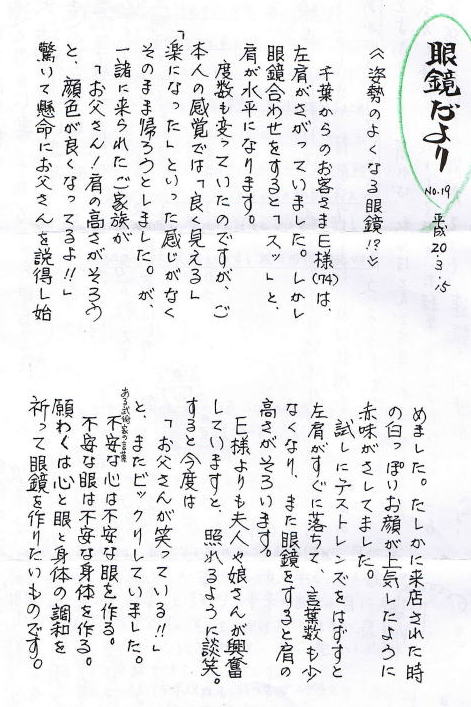 眼鏡だより
NO.19 平成20.3.15
《姿勢のよくなる眼鏡!?》
千葉からのお客さまE様(74)は、
左肩がさがっていました。しかし
眼鏡合わせをすると「スッ」と、
肩が水平になります。
度数も変っていたのですが、ご
本人の感覚では「良く見える」
「楽になった」といった感じがなく
そのまま帰ろうとしました。が、
一諸に来られたご家族が
「お父さん!肩の高さがそろう
と、顔色が良くなってるよ!!」
驚いて懸命にお父さんを説得し始
めました。たしかに来店された時
の白っぽいお顔が上気したように
赤味がさしてました。
試しにテストレンズをはずすと
左肩がすぐに落ちて、言葉数も少
なくなり、また眼鏡をすると肩の
高さがそろいます。
E様よりも夫人や娘さんが興奮
していますと、照れるように談笑。
すると今度は
「お父さんが笑っている!!」
と、またビックリしていました。
ある武術家の言葉
不安な心は不安な眼を作る。
不安な眼は不安な身体を作る。
願わくは心と眼と身体の調和を
祈って眼鏡を作りたいものです。